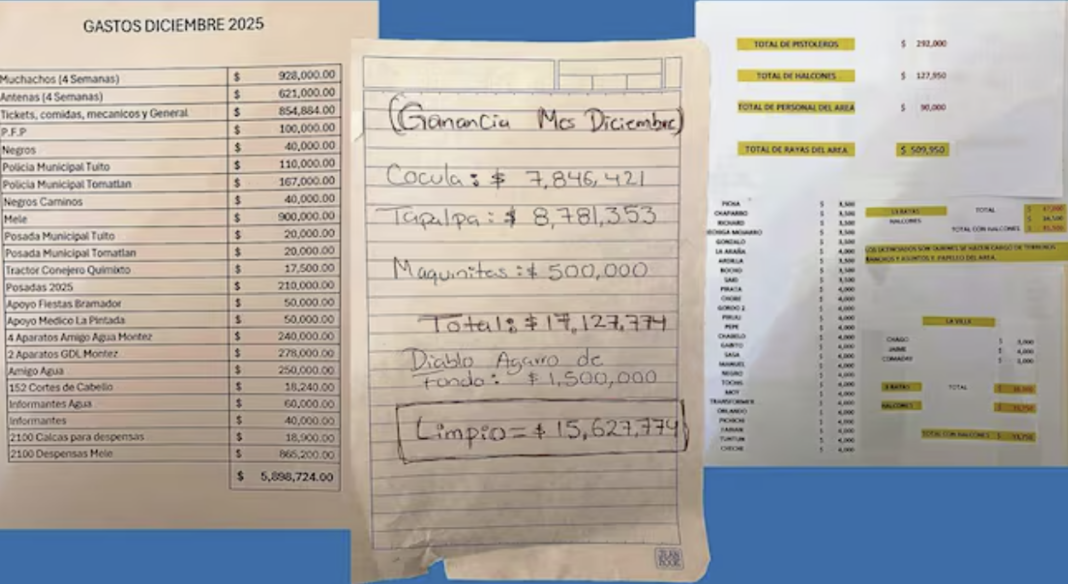 GASTOS DICIEMBRE 2025
Muchachos (4 Semanas) $ 928,000.00
Antenas (4 Semanas) $ 621,000.00
Tickets, comidas, mecanicos y General $ 854,884.00
P.F.P $ 100,000.00
Negros $ 40,000.00
Policia Municipal Tuito $ 110,000.00
Policia Municipal Tomatlan $ 167,000.00
Negros Caminos $ 40,000.00
Mele $ 900,000.00
Posada Municipal Tuito $ 20,000.00
Posada Municipal Tomatlan $ 20,000.00
Tractor Conejero Quimixto $ 17,500.00
Posadas 2025 $ 210,000.00
Apoyo Fiestas Bramador $ 50,000.00
Apoyo Medico La Pintada $ 50,000.00
4 Aparatos Amigo Agua Montez $ 240,000.00
2 Aparatos GDL Montez $ 278,000.00
Amigo Agua $ 250,000.00
152 Cortes de Cabello $ 18,240.00
Informantes Agua $ 60,000.00
Informantes $ 40,000.00
2100 Calcas para despensas $ 18,900.00
2100 Despensas Mele $ 865,200.00
$ 5,898,724.00
(Ganancia Mes Diciembre)
Cocula: $ 7,846,421
Tapalpa: $ 8,781,353
Maquinitas: $ 500,000
Total: $ 17,127,774
Diablo Agarro de
fondo: $ 1,500,000
Limpio = $ 15,627,774
JEAN BOOK
TOTAL DE PISTOLEROS $ 292,000
TOTAL DE HALCONES $ 127,950
TOTAL DE PERSONAL DEL AREA $ 90,000
TOTAL DE RAYAS DEL AREA $ 509,950
PICHA $ 3,500
CHAPARRO $ 3,500
RICHARD $ 3,500
$ 3,500
GONZALO $ 3,500
LA ARAÑA $ 3,500
ARDILLA $ 3,500
$ 3,500
$ 3,500
PIRATA $ 4,000
$ 4,000
GORDO 2 $ 4,000
$ 4,000
PEPE $ 4,000
CHABELO $ 4,000
GABITO $ 4,000
$ 4,000
MANUEL $ 4,000
NEGRO $ 4,000
$ 4,000
$ 4,000
TRANSFORMER $ 4,000
ORLANDO $ 4,000
$ 4,000
FABIAN $ 4,000
$ 4,000
$ 4,000
RAYAS TOTAL
HALCONES
TOTAL CON HALCONES
LOS LICENCIADOS SON QUIENES SE HACEN CARGO DE TERRENOS
RANCHOS Y ASUNTOS Y PAPELEO DEL AREA.
LA VILLA
CHAGO $ 3,000
JAIME $ 4,000
COMADRE $ 3,000
3 RAYAS TOTAL
HALCONES
TOTAL CON HALCONES